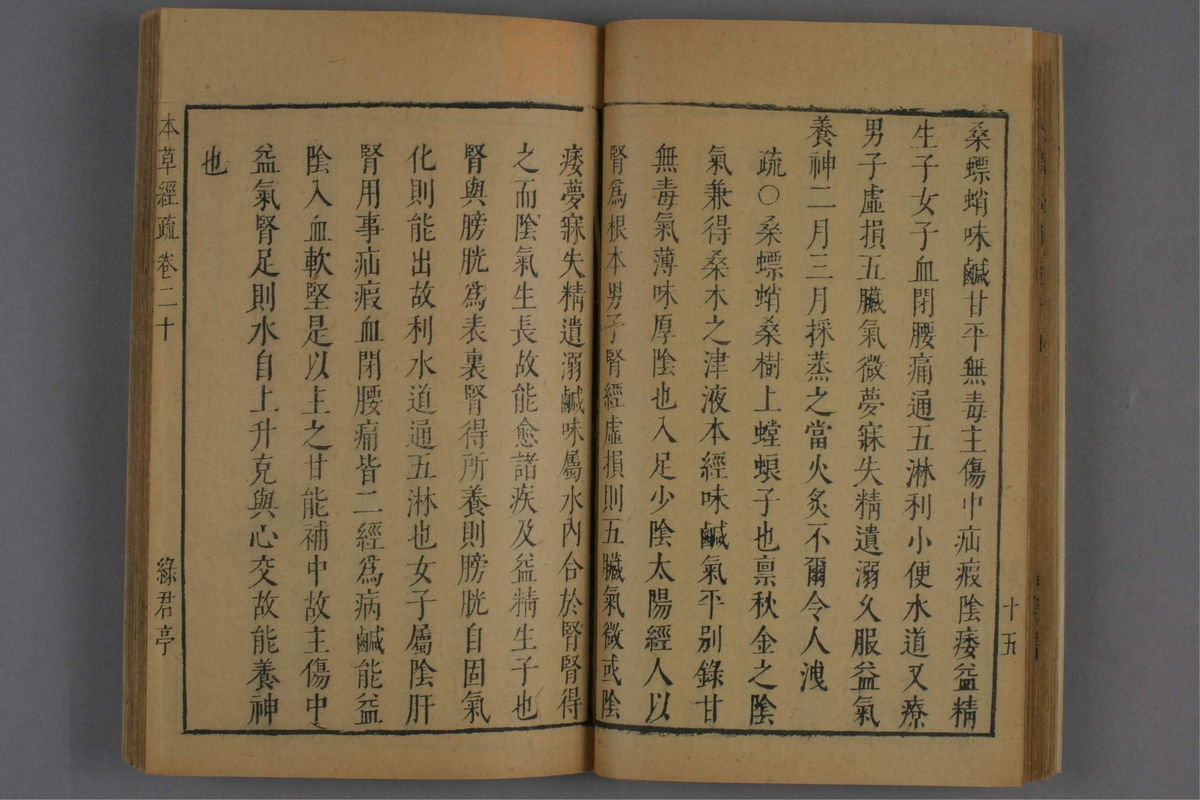 桑螵蛸味鹹甘平無毒主傷中疝瘕陰痿益精
生子女子血閉腰痛通五淋利小便水道又療
男子虛損五臟氣微夢寐失精遺溺久服益氣
養神二月三月採蒸之當火炙不爾令人洩
疏○桑螵蛸桑樹上螳蜋子也禀秋金之陰
氣兼得桑木之津液本經味鹹氣平別錄甘
無毒氣薄味厚陰也入足少陰太陽經人以
腎爲根本男子腎經虛損則五臟氣微或陰
痿夢寐失精遺溺鹹味屬水內合於腎腎得
之而陰氣生長故能愈諸疾及益精生子也
腎與膀胱爲表裏腎得所養則膀胱自固氣
化則能出故利水道通五淋也女子屬陰肝
腎用事疝瘕血閉腰痛皆二經爲病鹹能益
陰入血軟堅是以主之甘能補中故主傷中
益氣腎足則水自上升克與心交故能養神
也
十五
本草經疏 卷二十
綠君亭